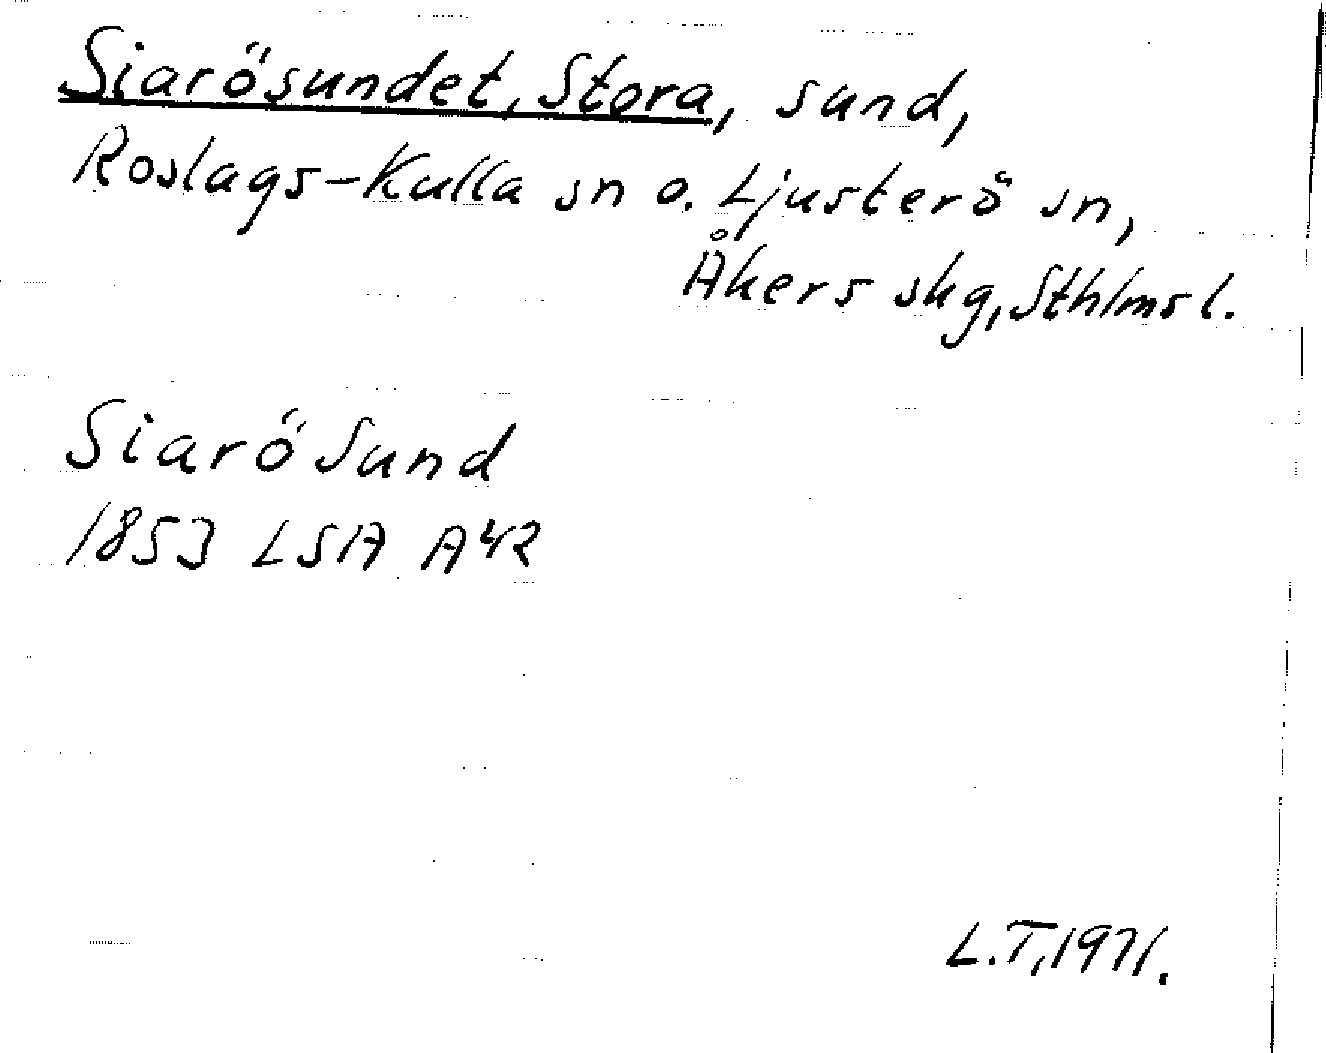 Siarösundet, Stora, sund,
Roslags-Kulla sn o. Ljusterö sn,
Åkers skg, Sthlms l.
Siarö Sund
1853 LSA A42
L.T. 1971.